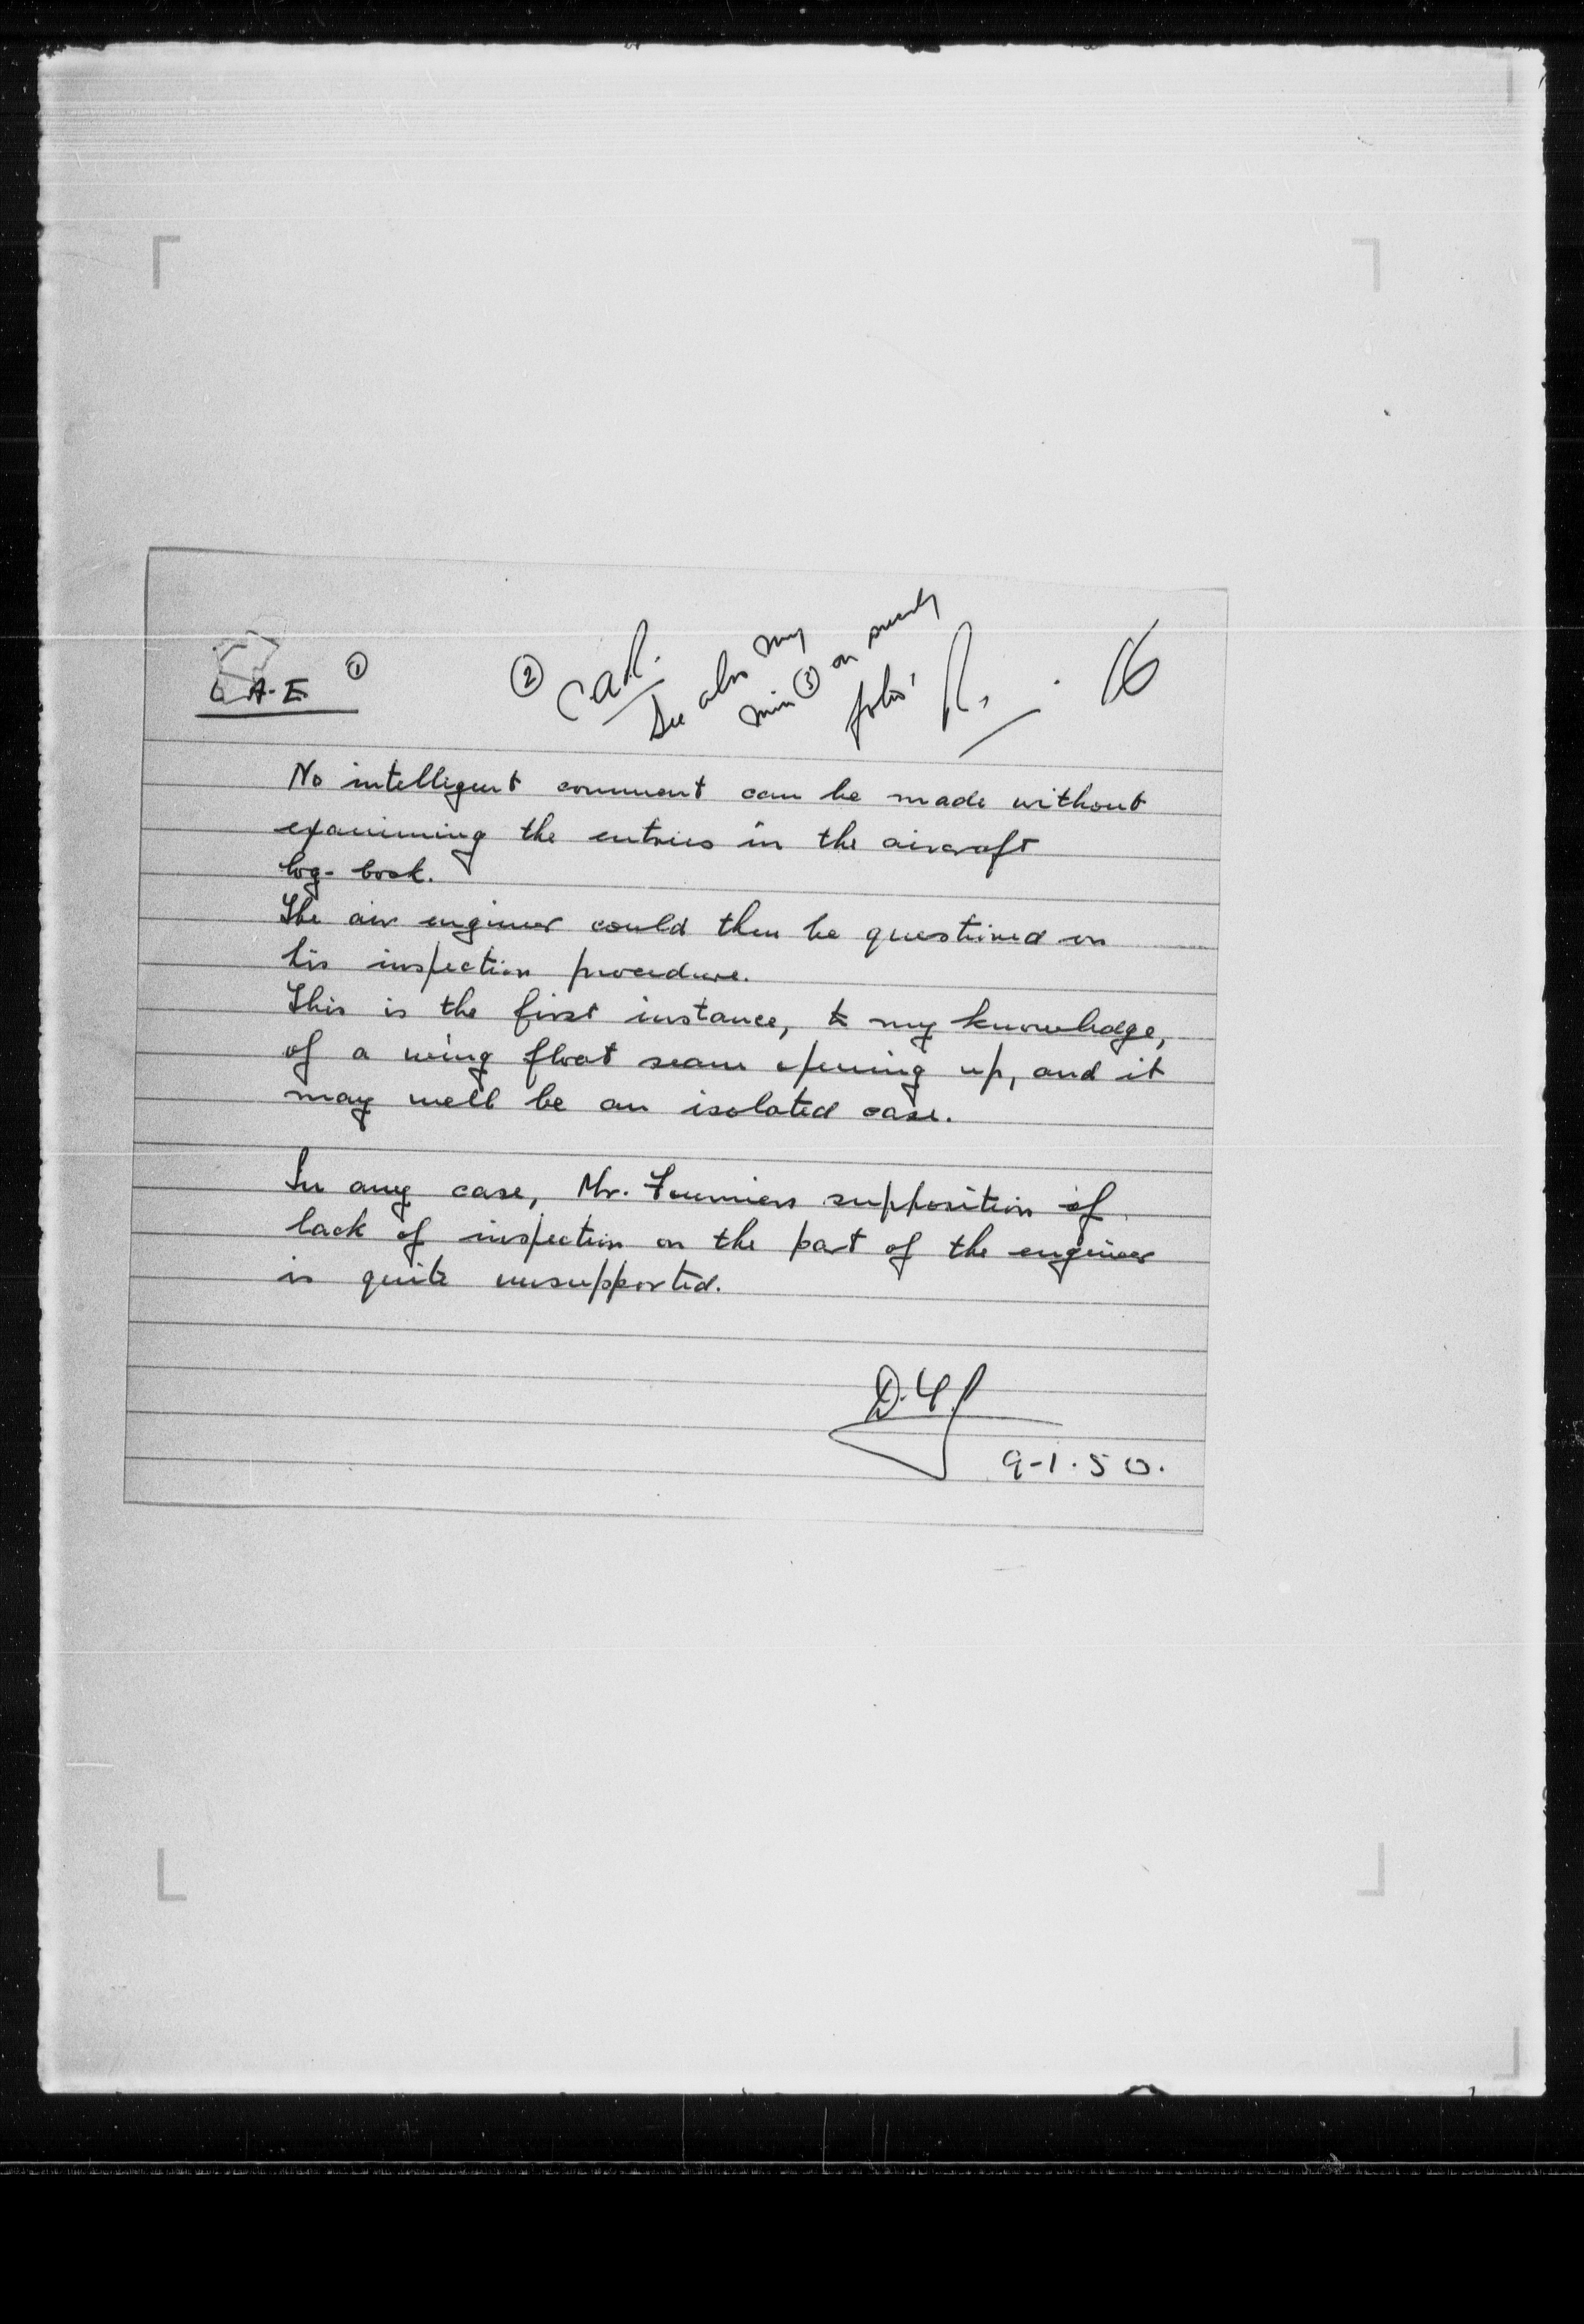 A.E ①
② CAR.
See also my
min ③ on
folio
16
No intelligent comment can be made without
examining the entries in the aircraft
log-book.
The air engineer could then be questioned on
his inspection procedure.
This is the first instance, to my knowledge,
of a wing float seam opening up, and it
may well be an isolated case.
In any case, Mr. Fourniers supposition of
lack of inspection on the part of the engineer
is quite unsupported.
9-1-50.